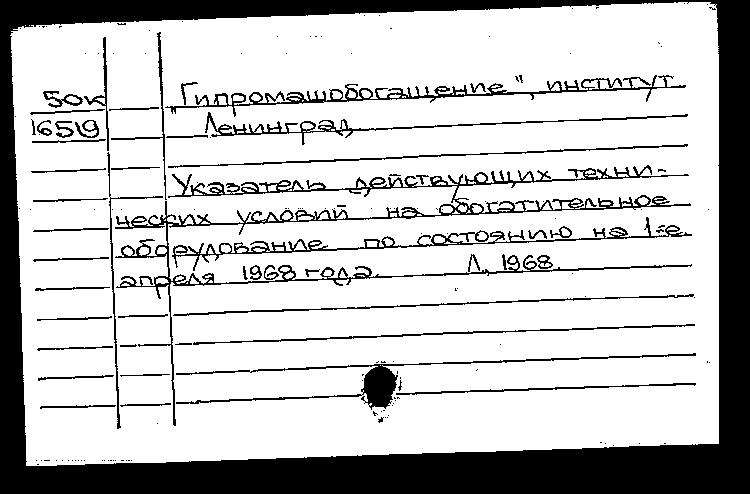 50к "Гипромашобогащение", институт
16519 Ленинград
Указатель действующих техни-
ческих условий на обогатительное
оборудование по состоянию на 1-е
апреля 1968 года. Л., 1968.